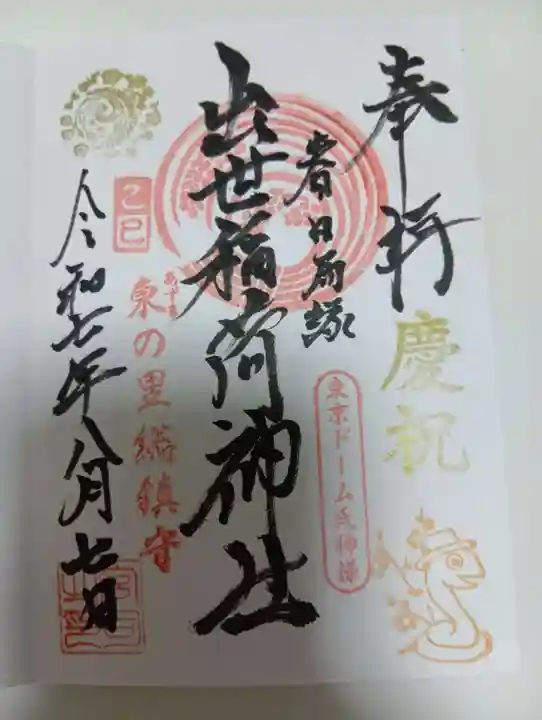 奉拝
慶祝
春日局縁
東京ドーム氏神様
出世稲荷神社
東の里総鎮守
乙巳
令和七年八月七日